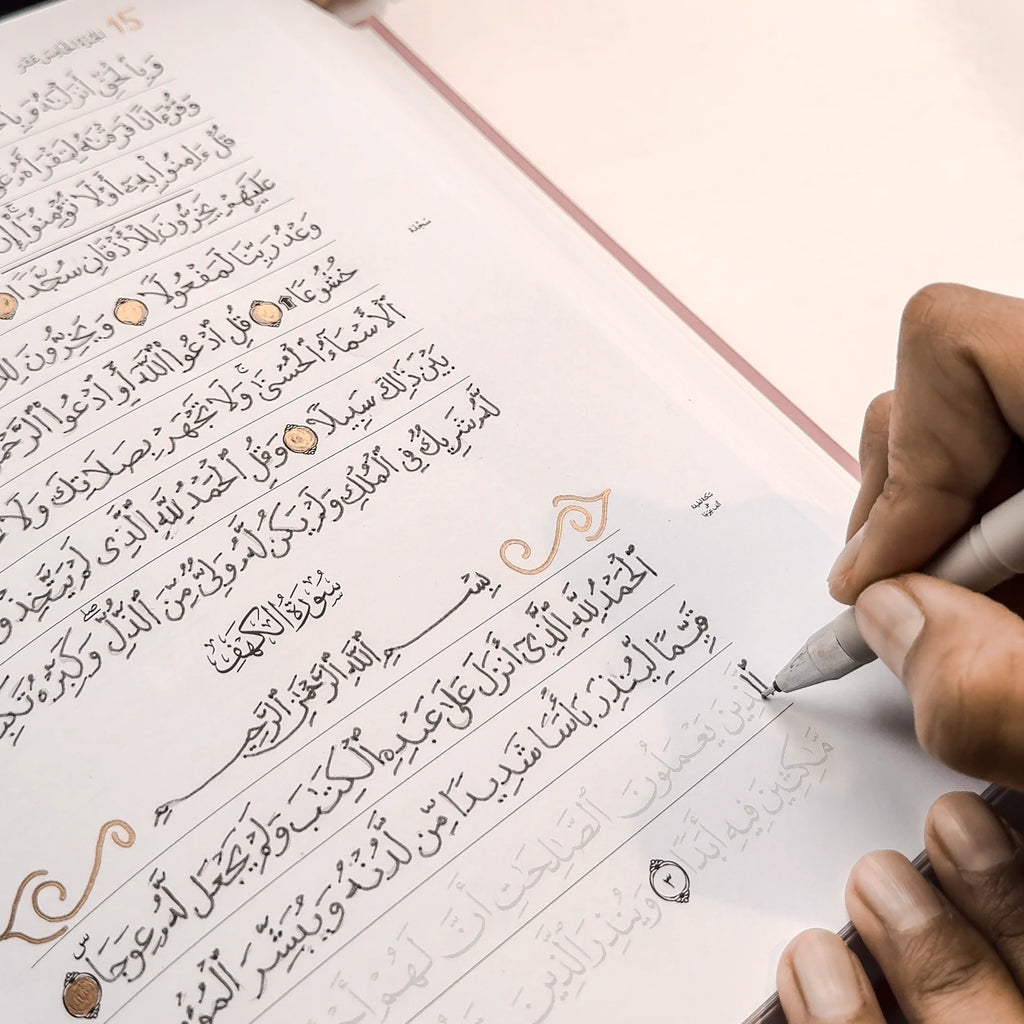 15 الجزء الخامس عشر
وَبِٱلْحَقِّ أَنزَلْنَٰهُ
وَقُرْءَانًا فَرَقْنَٰهُ لِتَقْرَأَهُۥ
قُلْ ءَامِنُوا۟ بِهِۦٓ أَوْ لَا تُؤْمِنُوٓا۟ إِنَّ
عَلَيْهِمْ يَخِرُّونَ لِلْأَذْقَانِ سُجَّدًا
وَعْدُ رَبِّنَا لَمَفْعُولًا وَيَخِرُّونَ
خُشُوعًا قُلِ ٱدْعُوا۟ ٱللَّهَ أَوِ ٱدْعُوا۟ ٱلرَّحْمَٰنَ
ٱلْأَسْمَآءُ ٱلْحُسْنَىٰ وَلَا تَجْهَرْ بِصَلَاتِكَ وَلَا
بَيْنَ ذَٰلِكَ سَبِيلًا وَقُلِ ٱلْحَمْدُ لِلَّهِ ٱلَّذِى لَمْ يَتَّخِذْ
لَّهُۥ شَرِيكٌ فِى ٱلْمُلْكِ وَلَمْ يَكُن لَّهُۥ وَلِىٌّ مِّنَ ٱلذُّلِّ وَكَبِّرْهُ
سُورَةُ الكَهْفِ
بِسْمِ ٱللَّهِ ٱلرَّحْمَٰنِ ٱلرَّحِيمِ
ٱلْحَمْدُ لِلَّهِ ٱلَّذِىٓ أَنزَلَ عَلَىٰ عَبْدِهِ ٱلْكِتَٰبَ وَلَمْ يَجْعَل لَّهُۥ عِوَجَا س
قَيِّمًا لِّيُنذِرَ بَأْسًا شَدِيدًا مِّن لَّدُنْهُ وَيُبَشِّرَ
ٱلَّذِينَ يَعْمَلُونَ ٱلصَّٰلِحَٰتِ أَنَّ لَهُمْ
مَّٰكِثِينَ فِيهِ أَبَدًا ٣ وَيُنذِرَ ٱلَّذِينَ